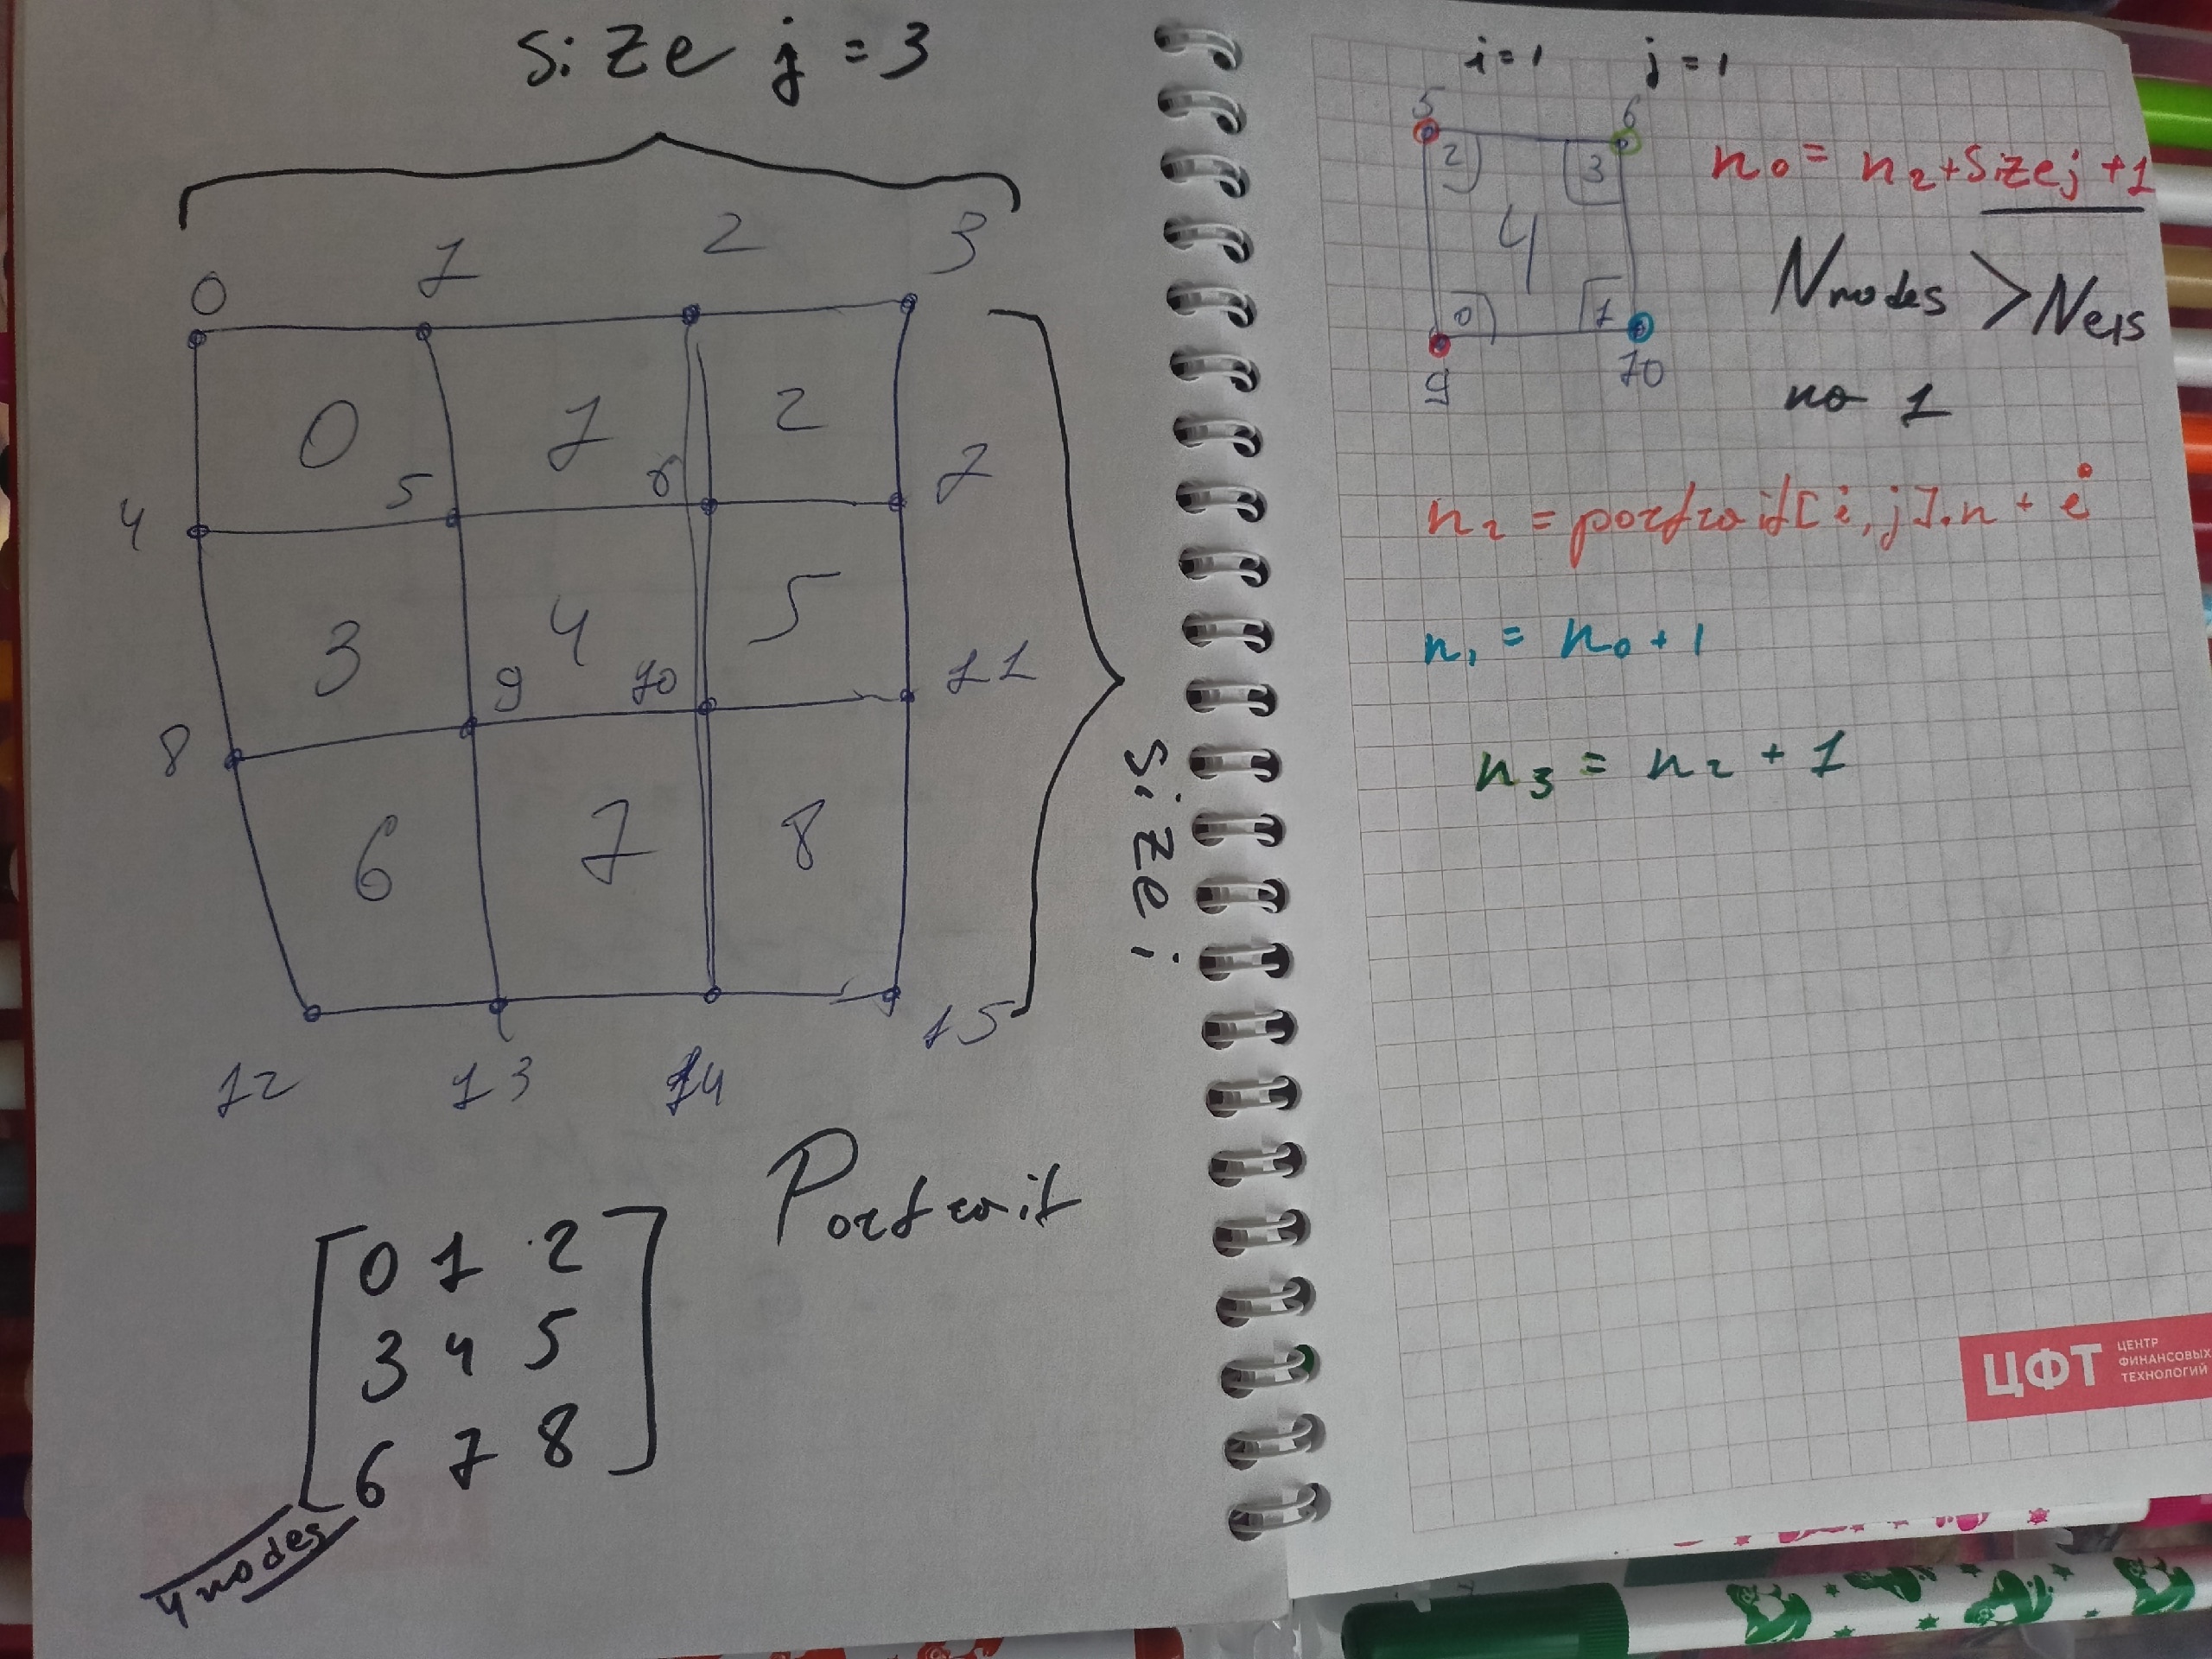 size j = 3
0 1 2 3
0 1 2
4 5 6 7
3 4 5
8 9 10 11
6 7 8
12 13 14 15
size i
Portrait
0 1 2
3 4 5
6 7 8
4 nodes
i = 1 j = 1
5 6
2 3
4
0 1
9 10
n₀ = n₂ + sizej + 1
Nnodes > Nels
на 1
n₂ = portrait[i, j].n + i
n₁ = n₀ + 1
n₃ = n₂ + 1
ЦФТ
ЦЕНТР
ФИНАНСОВЫХ
ТЕХНОЛОГИЙ